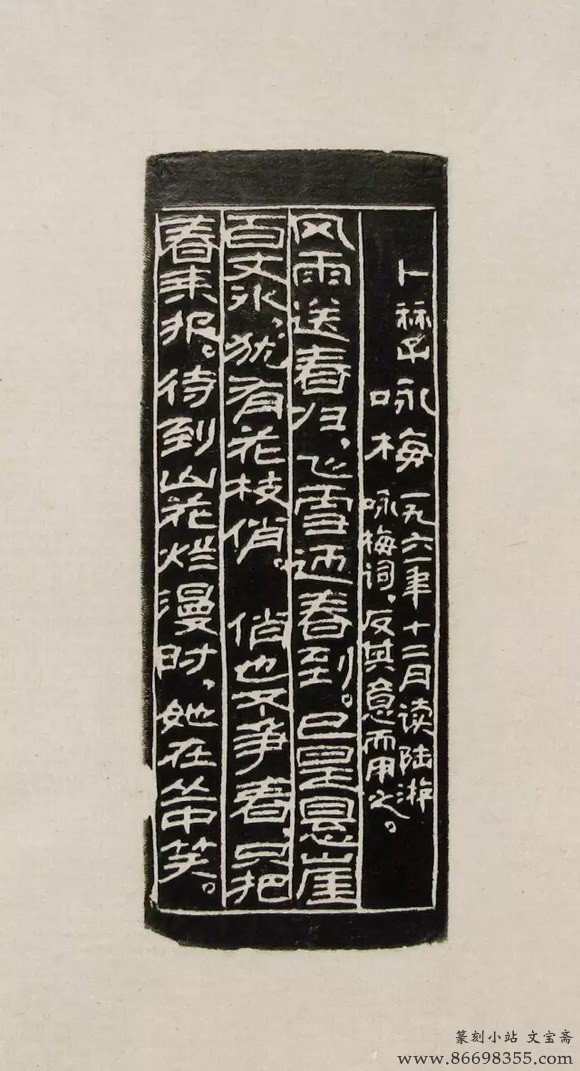 卜算子 咏梅
一九六一年十二月读陆游
咏梅词，反其意而用之。
风雨送春归，飞雪迎春到。已是悬崖
百丈冰，犹有花枝俏。俏也不争春，只把
春来报。待到山花烂漫时，她在丛中笑。
篆刻小站 文宝斋
www.86698355.com